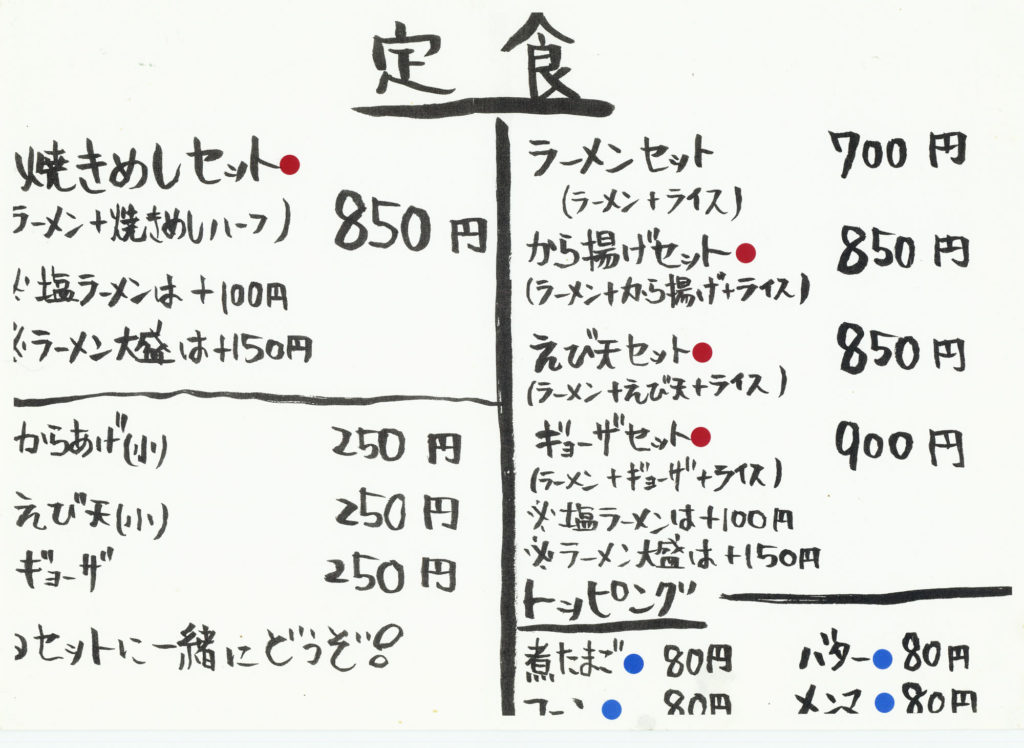 定食
焼きめしセット
ラーメン+焼きめしハーフ) 850円
※塩ラーメンは+100円
※ラーメン大盛は+150円
からあげ(小) 250円
えび天(小) 250円
ギョーザ 250円
セットに一緒にどうぞ!
ラーメンセット 700円
(ラーメン+ライス)
から揚げセット 850円
(ラーメン+から揚げ+ライス)
えび天セット 850円
(ラーメン+えび天+ライス)
ギョーザセット 900円
(ラーメン+ギョーザ+ライス)
※塩ラーメンは+100円
※ラーメン大盛は+150円
トッピング
煮たまご 80円 バター 80円
コーン 80円 メンマ 80円